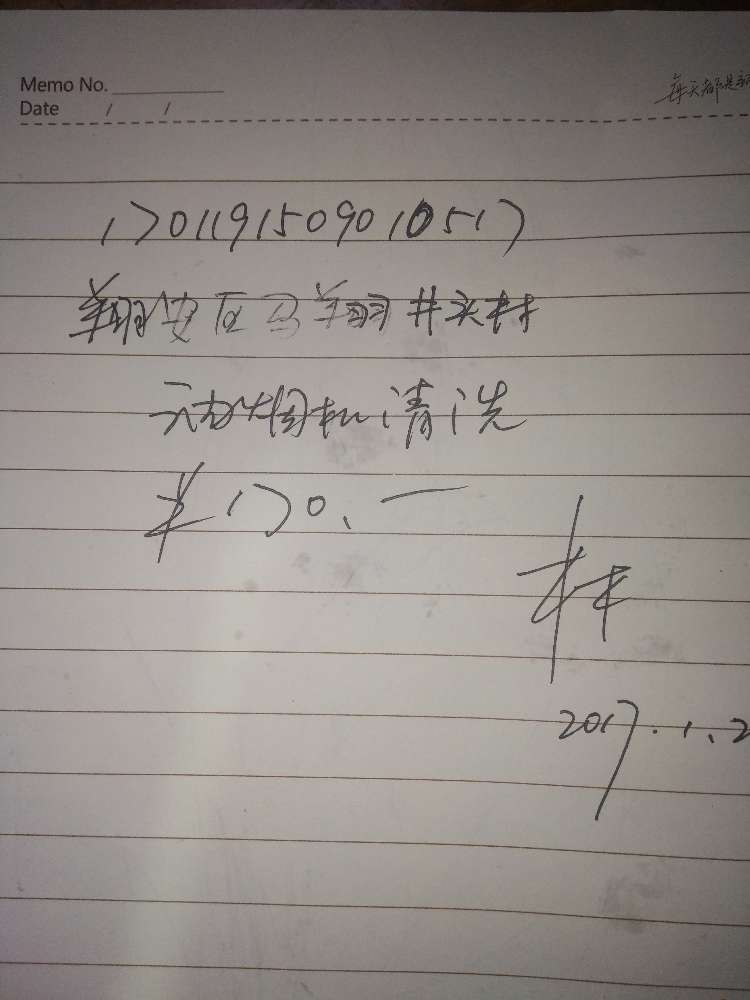 Memo No.
Date / /
每天都是
1701191509010517
翔安区马翔井头村
油烟机清洗
¥170.一
林
2017.1.2